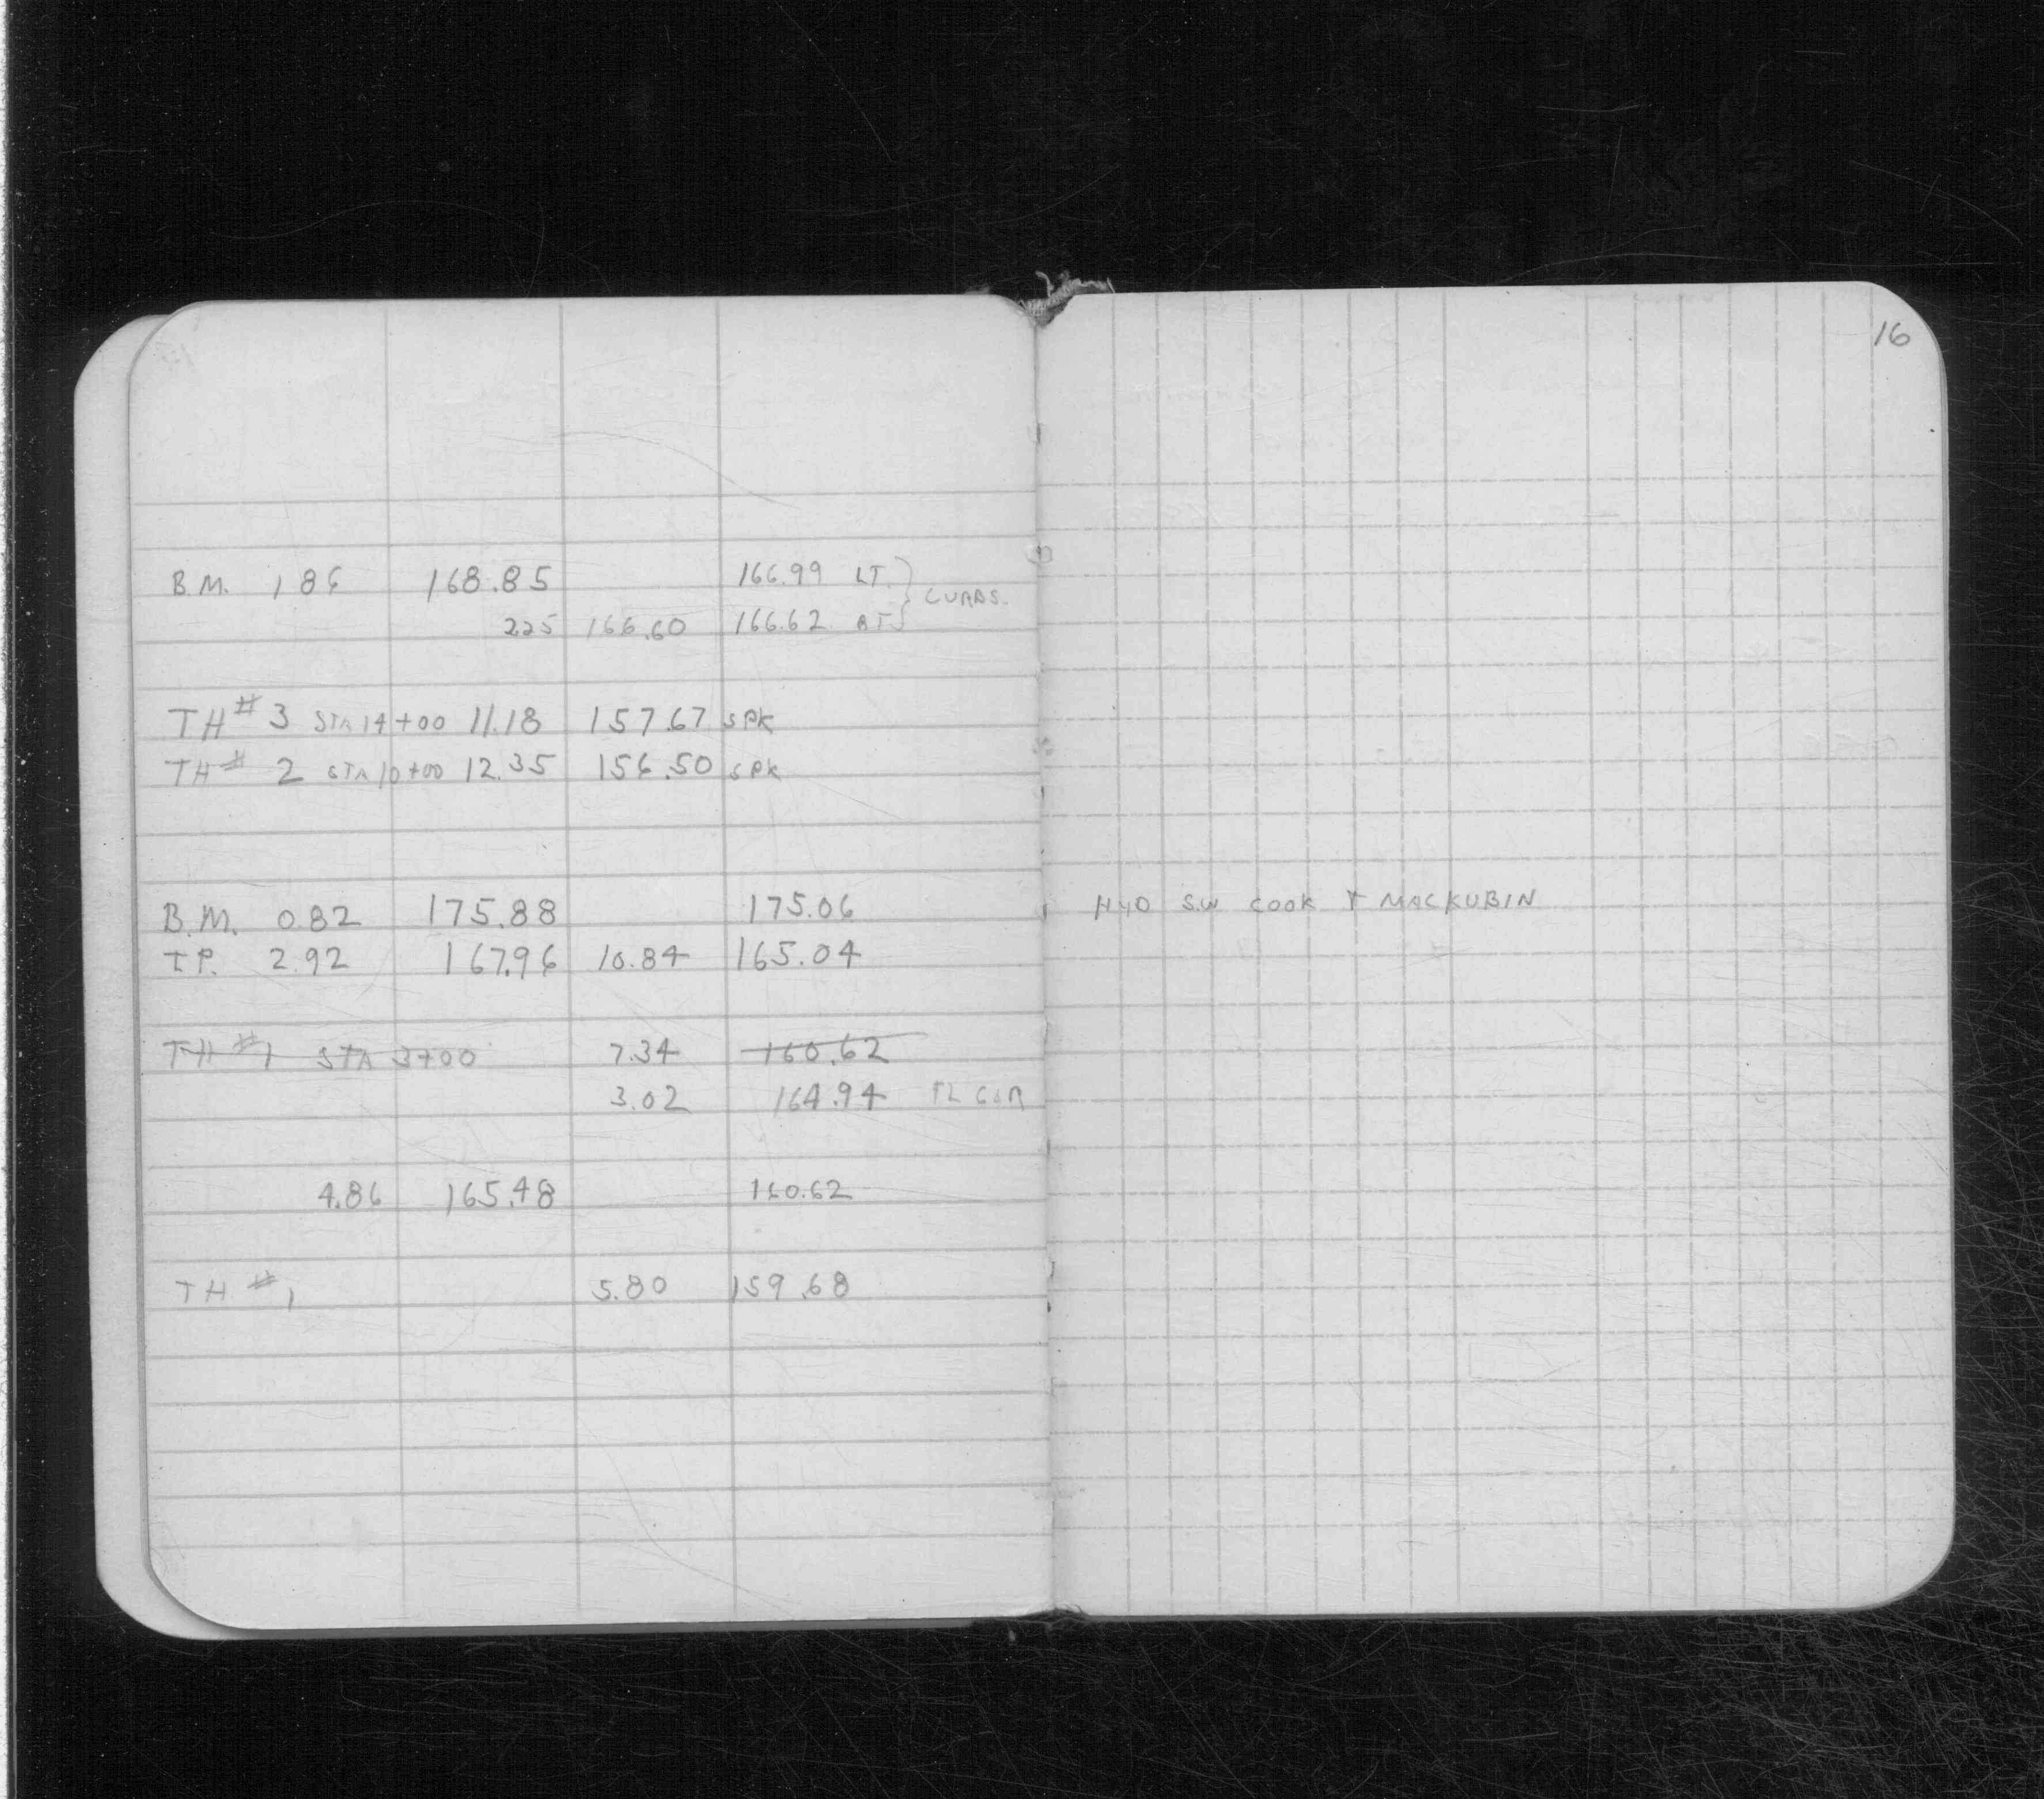 16
B.M. 1 86 168.85 166.99 LT.
CURBS.
2.25 166.60 166.62 RT
TH # 3 STA 14+00 11.18 157.67 SPK
TH # 2 STA 10+00 12.35 156.50 SPK
B.M. 0.82 175.88 175.06 HYD S.W COOK & MACKUBIN
T.P. 2.92 167.96 10.84 165.04
TH #1 STA 3+00 7.34 160.62
3.02 164.94
4.86 165.48 160.62
TH #1 5.80 159.68